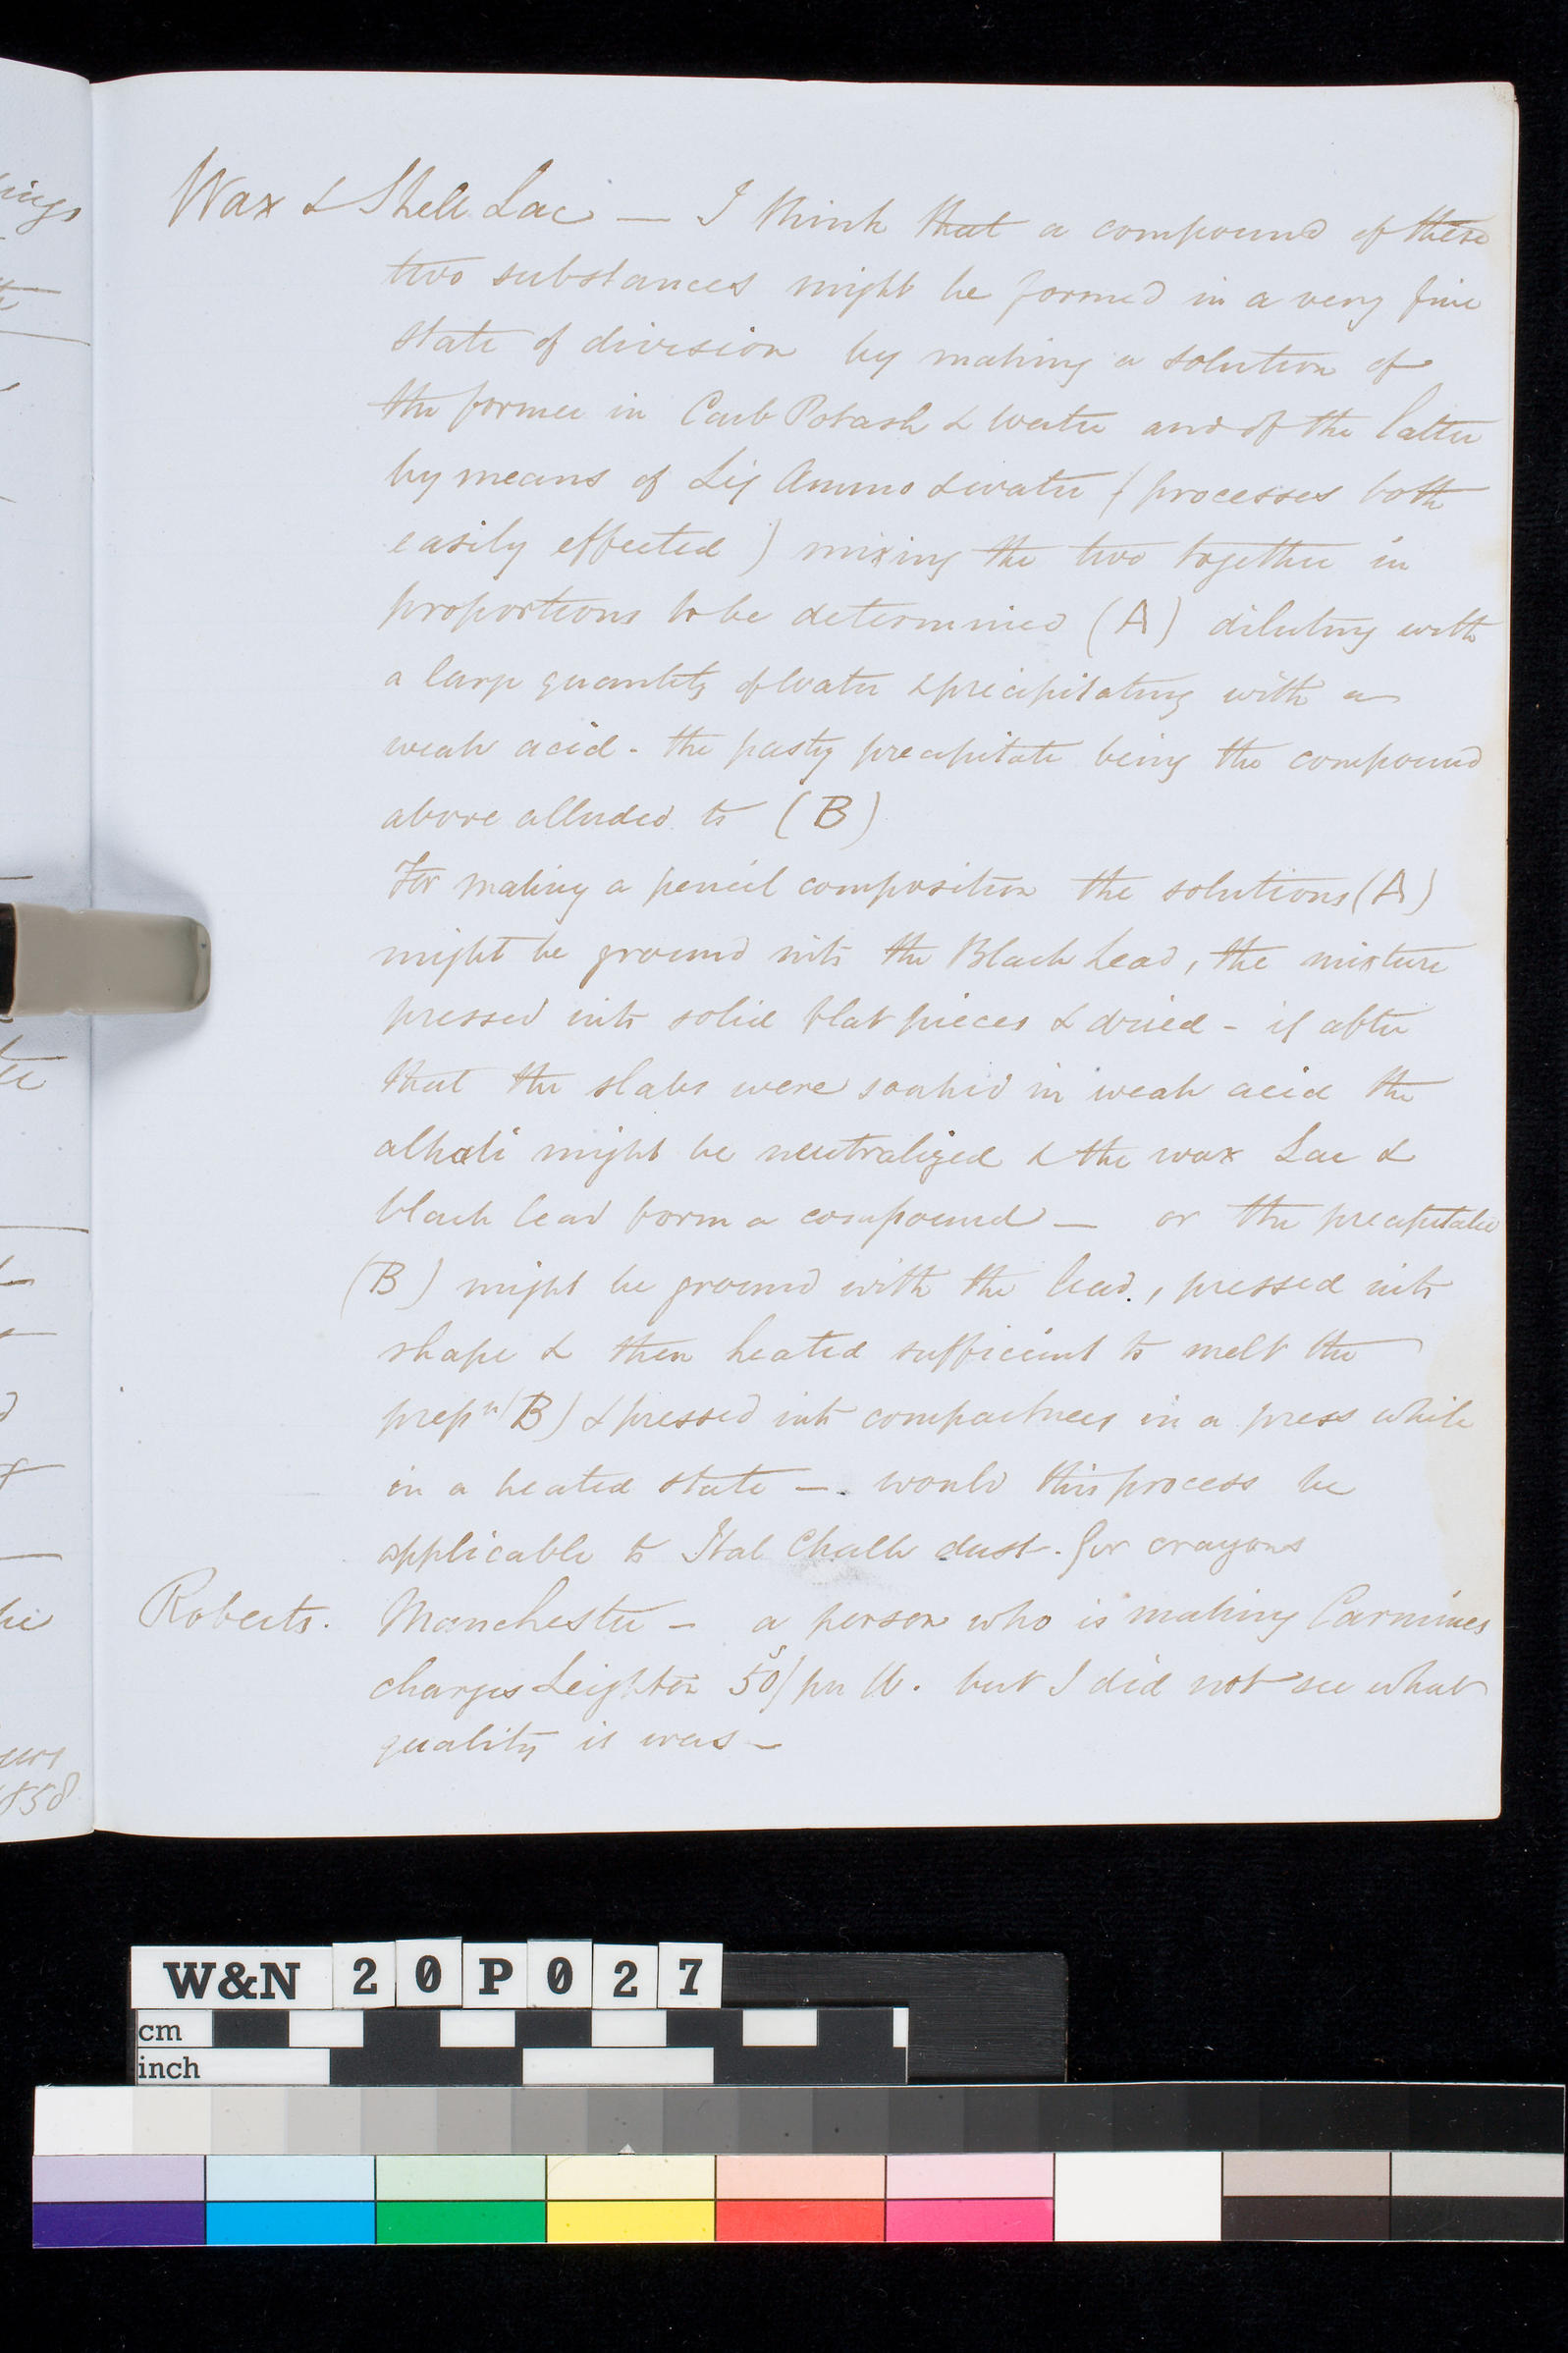 ings
Wax & Shell Lac — I think that a compound of these
two substances might be formed in a very fine
state of division by making a solution of
the former in Carb Potash & Water and of the latter
by means of Liq Ammo & water (processes both
easily effected) mixing the two together in
proportions to be determined (A) diluting with
a large quantity of Water & precipitating with a
weak acid - the pasty precipitate being the compound
above alluded to (B)
For making a pencil composition the solutions (A)
might be ground into the Black Lead, the mixture
pressed into solid flat pieces & dried - if after
that the slabs were soaked in weak acid the
alkali might be neutralized & the wax Lac &
black lead form a compound — or the precipitate
(B) might be ground with the lead, pressed into
shape & then heated sufficient to melt the
prepn (B) & pressed into compactness in a press while
in a heated state — would this process be
applicable to Ital Chalk dust - for crayons
Roberts. Manchester - a person who is making Carmines
charges Leighton 50s/ per lb. but I did not see what
quality it was —
1858
W&N 20P027
cm
inch